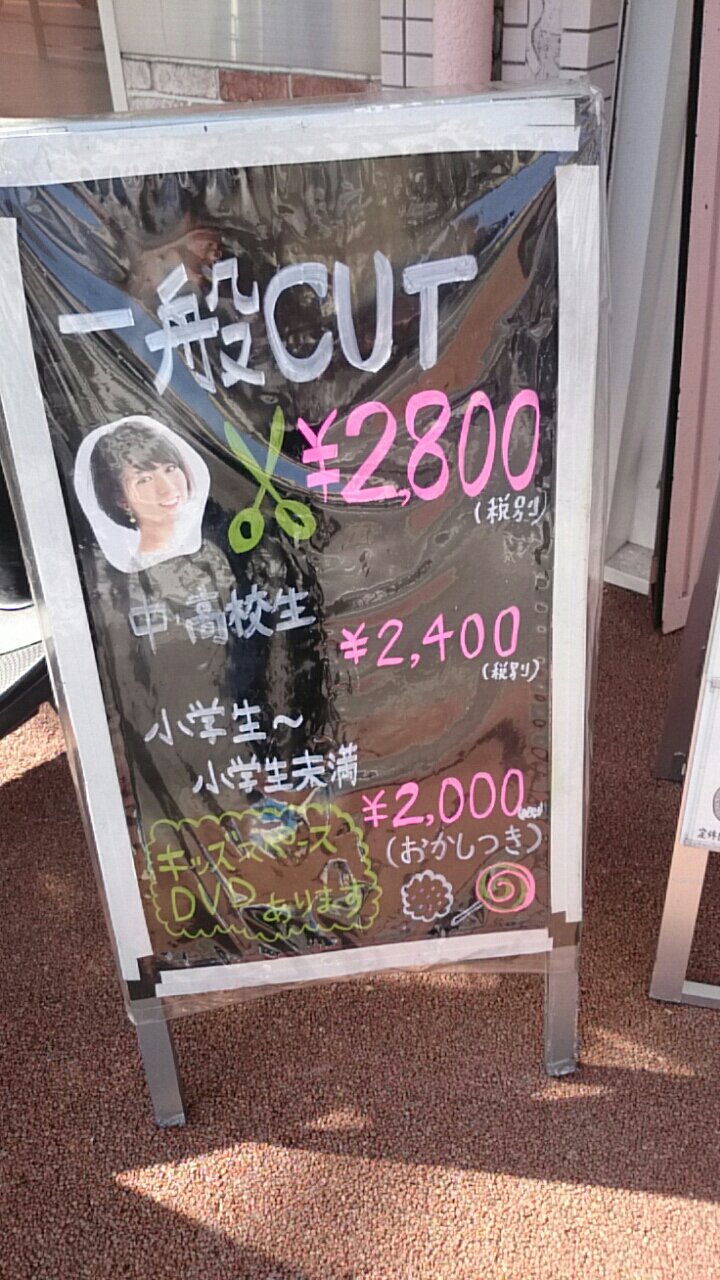 一般CUT
¥2,800
(税別)
中・高校生
¥2,400
(税別)
小学生～
小学生未満
¥2,000
(おかしつき)
キッズスペース
DVD あります